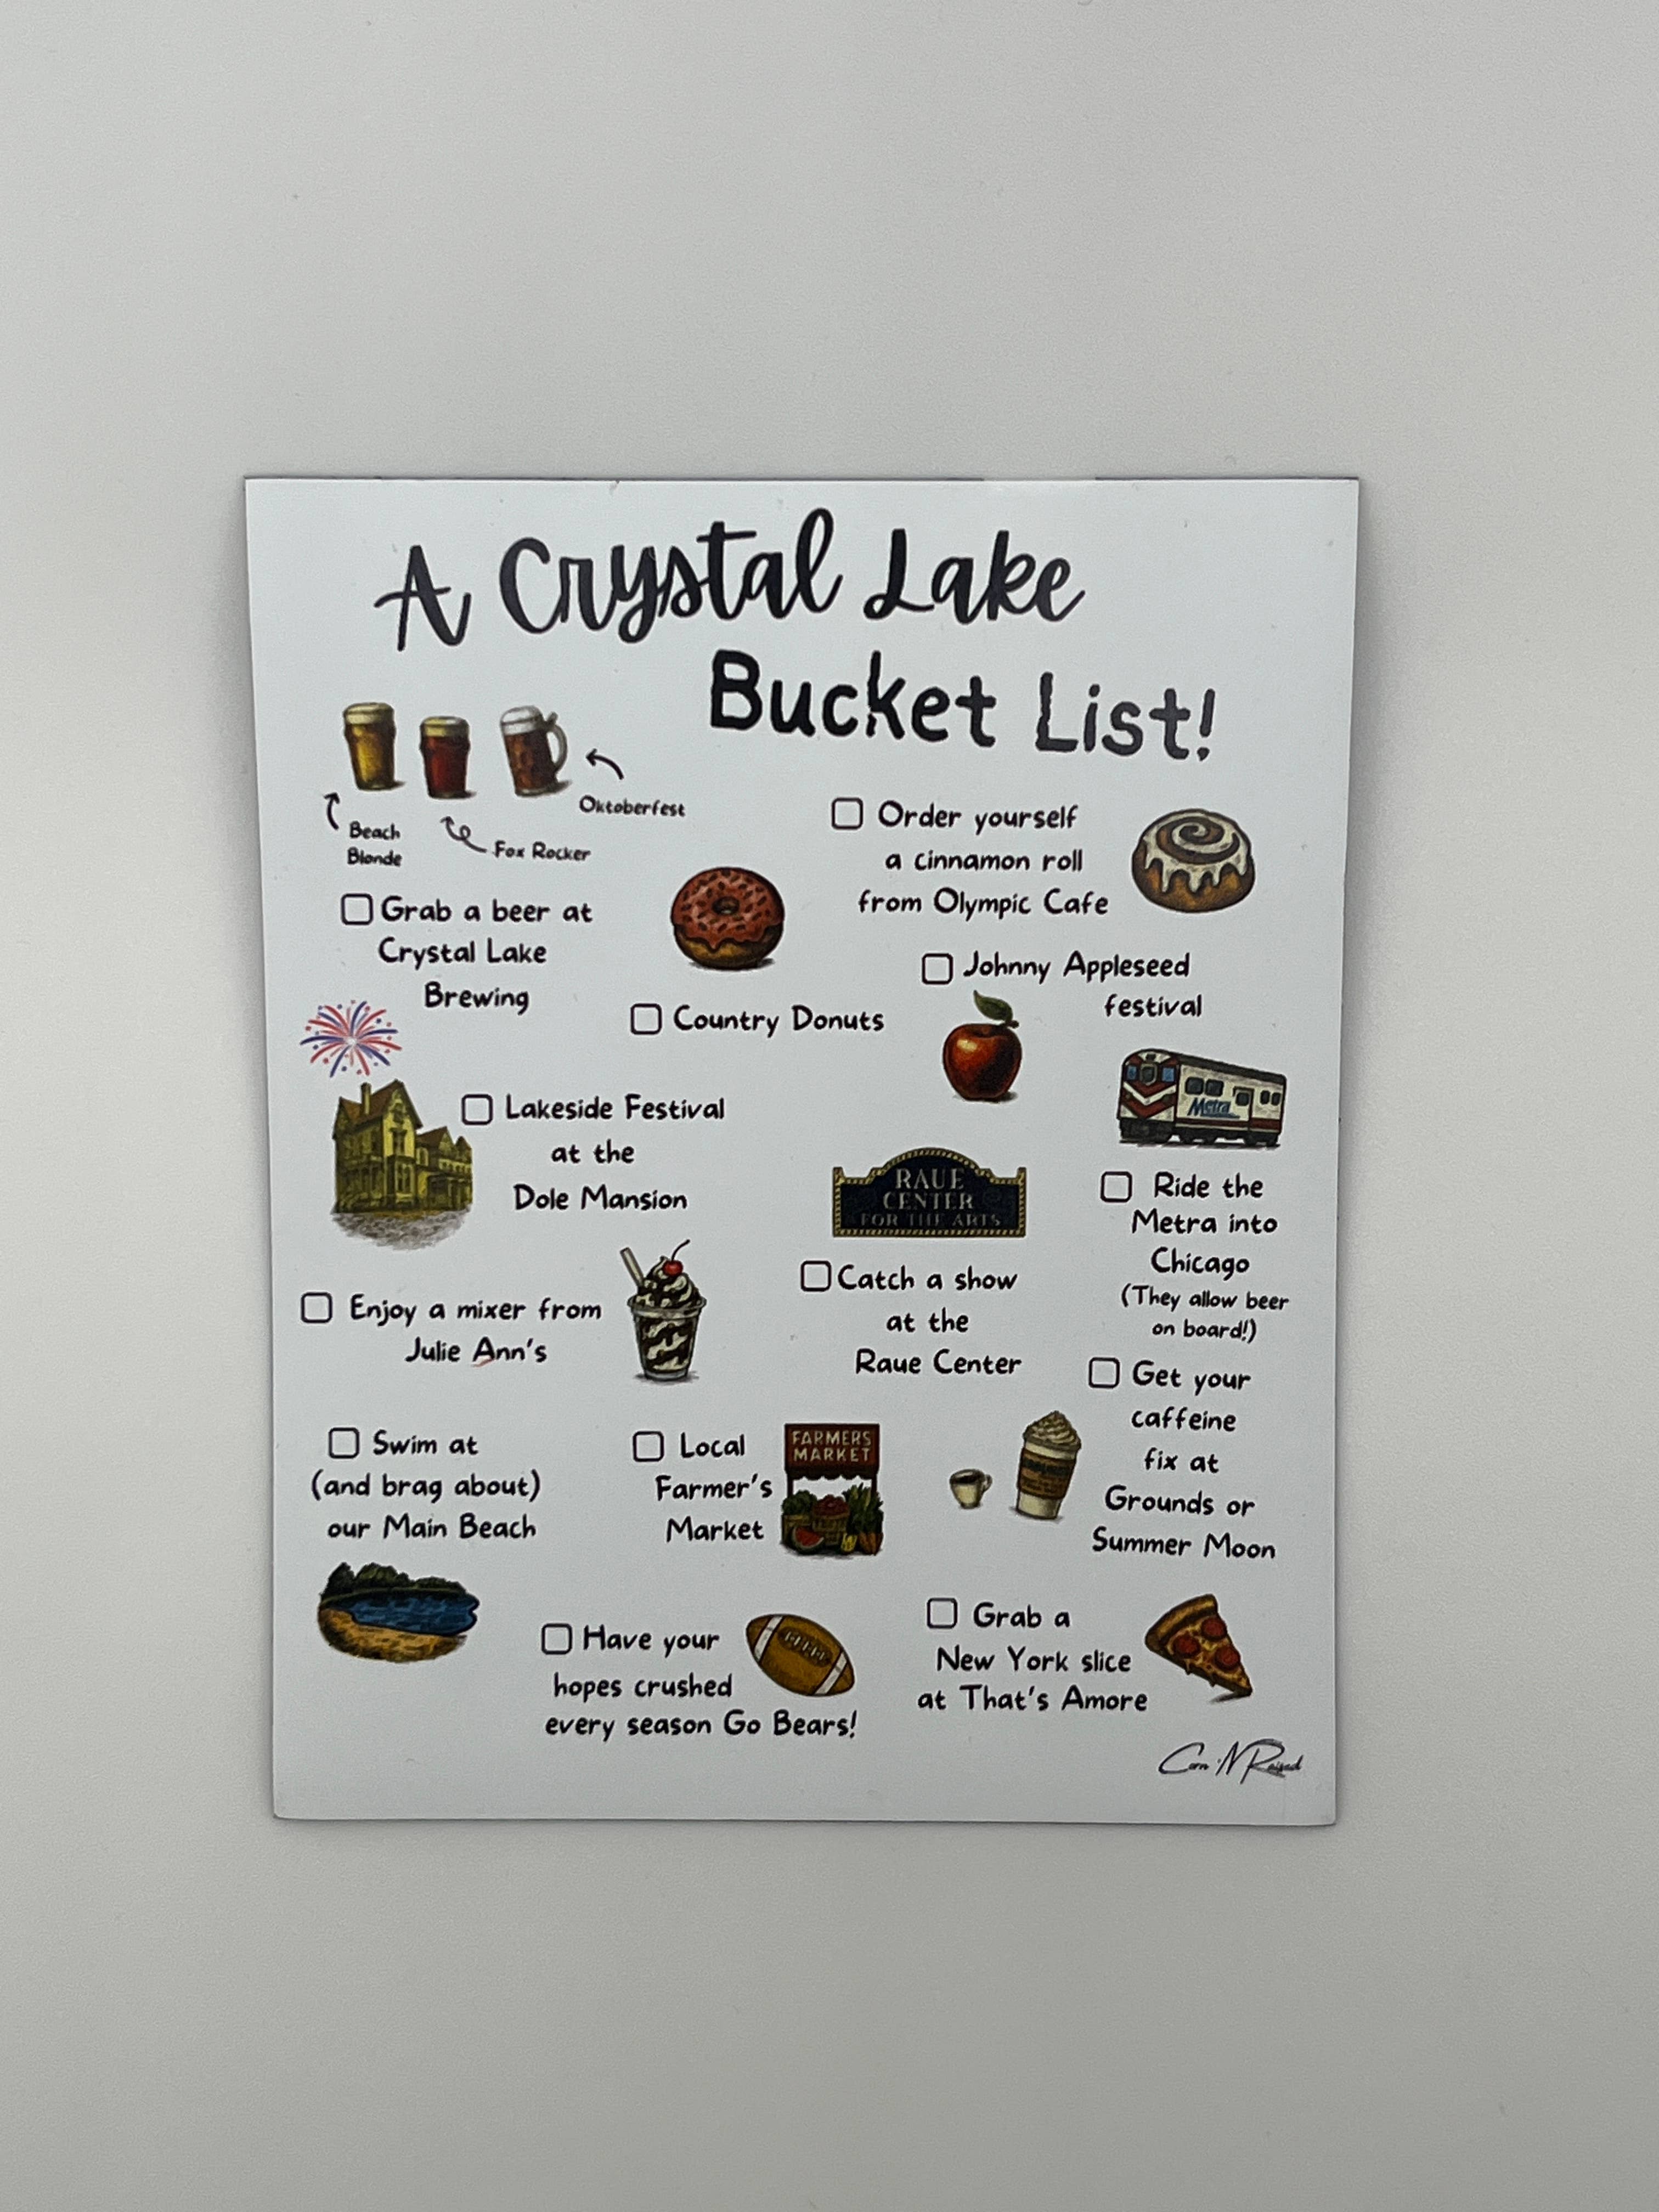 A Crystal Lake
Bucket List!
Oktoberfest
Beach
Blonde
Fox Rocker
Grab a beer at
Crystal Lake
Brewing
Order yourself
a cinnamon roll
from Olympic Cafe
Country Donuts
Johnny Appleseed
festival
Lakeside Festival
at the
Dole Mansion
Metra
RAUE
CENTER
FOR THE ARTS
Ride the
Metra into
Chicago
(They allow beer
on board!)
Enjoy a mixer from
Julie Ann's
Catch a show
at the
Raue Center
Get your
caffeine
fix at
Grounds or
Summer Moon
Swim at
(and brag about)
our Main Beach
Local
Farmer's
Market
FARMERS
MARKET
Have your
hopes crushed
every season Go Bears!
Grab a
New York slice
at That's Amore
Corn 'N Raised